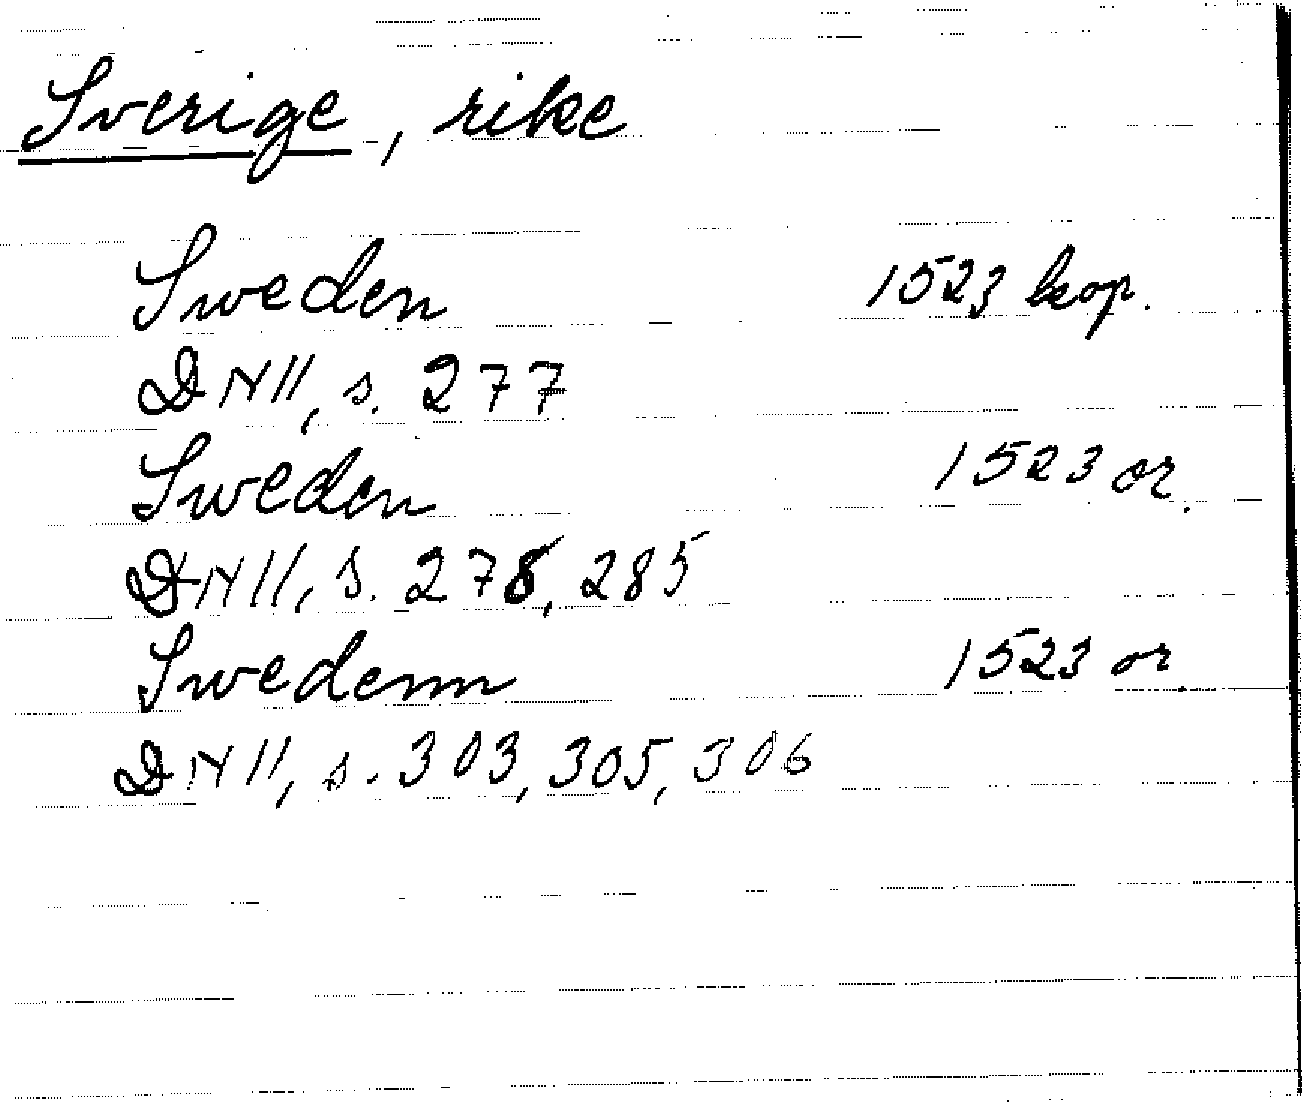 Sverige, rike
Sweden 1523 kop.
DN II, s. 277
Sweden 1523 or.
DN II, s. 278, 285
Swedenn 1523 or.
DN II, s. 303, 305, 306